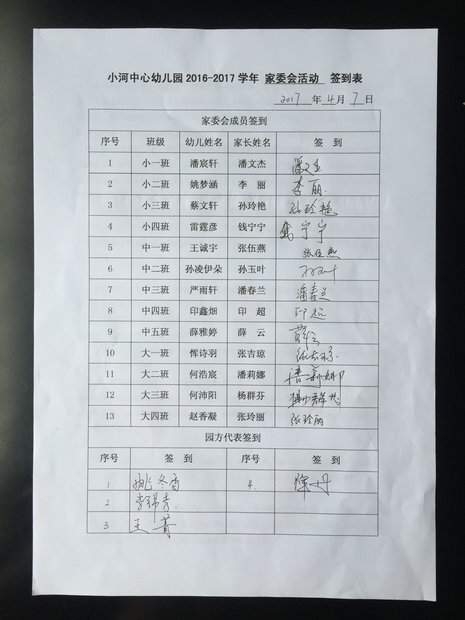 小河中心幼儿园 2016-2017 学年 家委会活动 签到表
2017 年 4 月 7 日
家委会成员签到
序号 班级 幼儿姓名 家长姓名 签 到
1 小一班 潘宸轩 潘文杰
2 小二班 姚梦涵 李 丽 李丽
3 小三班 蔡文轩 孙玲艳 孙玲艳
4 小四班 雷霆彦 钱宁宁 钱宁宁
5 中一班 王诚宇 张伍燕 张伍燕
6 中二班 孙凌伊朵 孙玉叶
7 中三班 严雨轩 潘春兰 潘春兰
8 中四班 印鑫畑 印 超 印超
9 中五班 薛雅婷 薛 云 薛云
10 大一班 恽诗羽 张吉琼
11 大二班 何浩宸 潘莉娜 潘莉娜
12 大三班 何沛阳 杨群芬
13 大四班 赵香凝 张玲丽 张玲丽
园方代表签到
序号 签 到 序号 签 到
1 姚冬香 4 陈丹
2 李锦秀
3 王菁